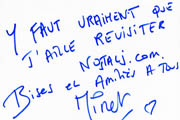 Y FAUT VRAIMENT QUE
J'AILLE REVISITER
NOSTALJ.COM.
BISES et AMITIÉS A TOUS
Minet